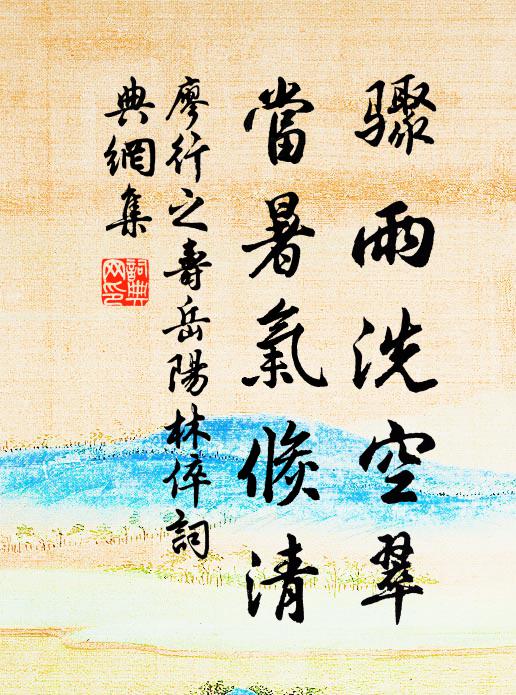 驟雨洗空翠
當暑氣倏清
廖行之壽岳陽林倅詞
典網集
詞典網印